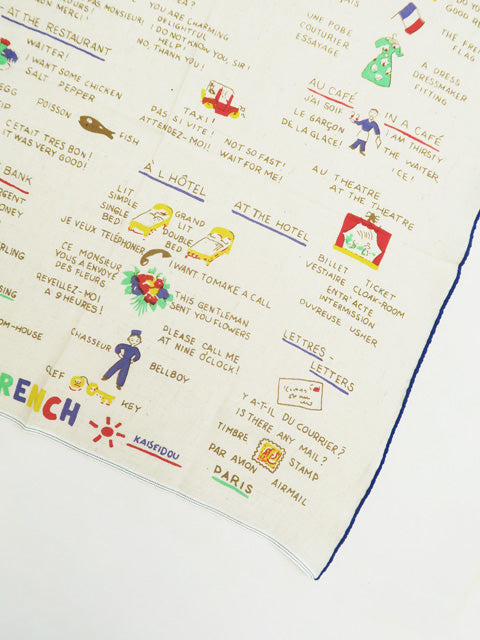 PAS MONSIEUR!
MERCI!
YOU ARE CHARMING
DELIGHTFUL
HELP!
I DO NOT KNOW YOU, SIR!
NO, THANK YOU!
AT THE RESTAURANT
WAITER!
I WANT SOME CHICKEN
SALT PEPPER
EGG
POISSON
FISH
C'ETAIT TRES BON!
IT WAS VERY GOOD!
TAXI!
PAS SI VITE!
ATTENDEZ-MOI!
NOT SO FAST!
WAIT FOR ME!
UNE ROBE
COUTURIER
ESSAYAGE
FLAG
A DRESS
DRESSMAKER
FITTING
AU CAFÉ
IN A CAFÉ
J'AI SOIF
I AM THIRSTY
LE GARÇON
THE WAITER
DE LA GLACE!
ICE!
AU THEATRE
AT THE THEATRE
BILLET TICKET
VESTIAIRE CLOAK-ROOM
ENTR'ACTE
INTERMISSION
OUVREUSE USHER
BANK
À L'HÔTEL
AT THE HOTEL
LIT
SIMPLE
SINGLE
BED
GRAND
LIT
DOUBLE
BED
JE VEUX TÉLÉPHONER
I WANT TO MAKE A CALL
CE MONSIEUR
VOUS A ENVOYÉ
DES FLEURS
THIS GENTLEMAN
SENT YOU FLOWERS
REVEILLEZ-MOI
A 9 HEURES!
PLEASE CALL ME
AT NINE O'CLOCK!
CHASSEUR
BELLBOY
CLEF
KEY
LETTRES-
LETTERS
Y A-T-IL DU COURRIER?
IS THERE ANY MAIL?
TIMBRE
STAMP
PAR AVION
AIRMAIL
PARIS
RENCH
KAISEIDOU